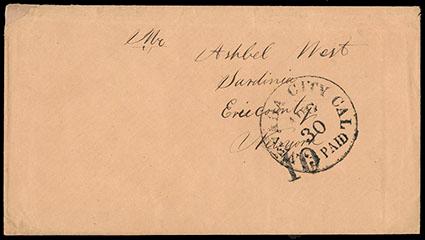 Mr
Ashbel West
Sardinia
Erie County
N. York
CITY CAL
30
PAID
10